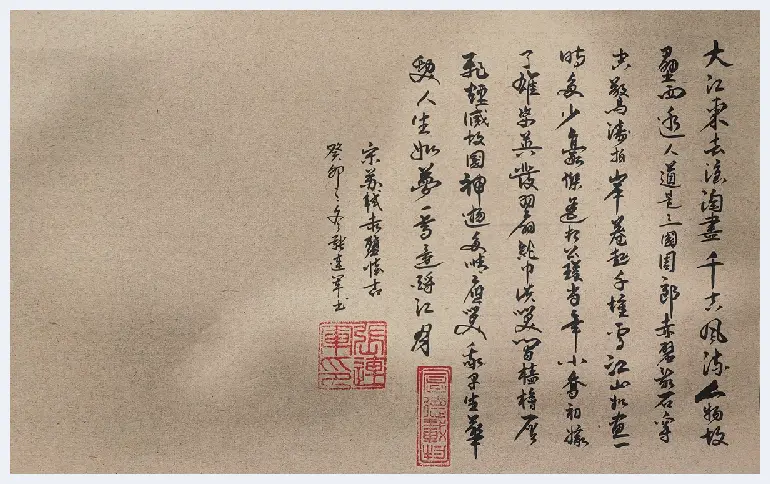 大江東去浪淘盡千古風流人物故
壘西邊人道是三國周郎赤壁亂石穿
空驚濤拍岸卷起千堆雪江山如畫一
時多少豪傑遙想公瑾當年小喬初嫁
了雄姿英發羽扇綸巾談笑間檣櫓灰
飛煙滅故國神遊多情應笑我早生華
髮人生如夢一尊還酹江月
厚德載物
宋蘇軾赤壁懷古
癸卯之冬張連軍書
張連軍印